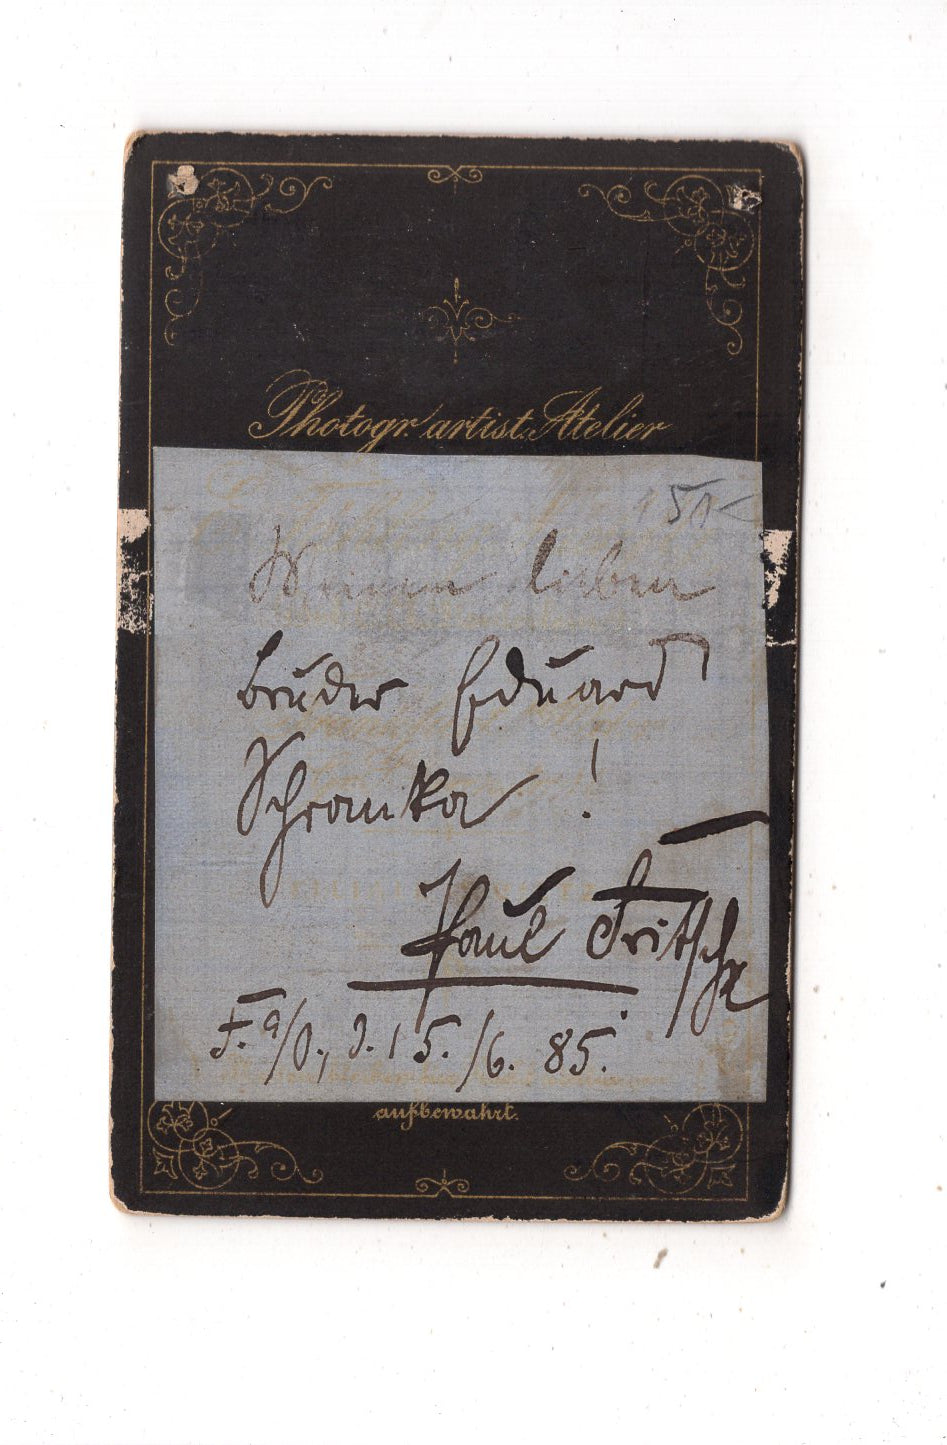 Photogr. artist. Atelier
Meinen lieben
Bruder Eduard
Schramka !
Paul Fritsche
F. a/O., d. 15./6. 85.
aufbewahrt.